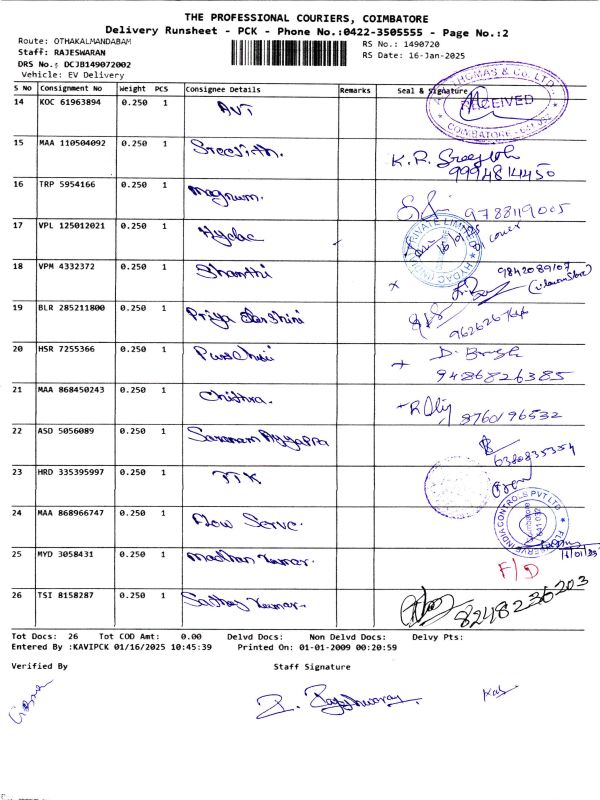 THE PROFESSIONAL COURIERS, COIMBATORE
Delivery Runsheet - PCK - Phone No.:0422-3505555 - Page No.:2
Route: OTHAKALMANDABAM
RS No.: 1490720
Staff: RAJESWARAN
RS Date: 16-Jan-2025
DRS No.: DCJB149072002
Vehicle: EV Delivery
S No Consignment No Weight PCS Consignee Details Remarks Seal & Signature
14 KOC 61963894 0.250 1 AVT RECEIVED
THOMAS & CO. LTD.
COIMBATORE
15 MAA 110504092 0.250 1 Sreejith. K.R. Sreejith
9994814450
16 TRP 5954166 0.250 1 Magnum. 9788119005
17 VPL 125012021 0.250 1 Hydac 1 cover
PRIVATE LIMITED
HYDAC (INDIA)
18 VPM 4332372 0.250 1 Shanthi 9842089107
19 BLR 285211800 0.250 1 Priya Darshini
20 HSR 7255366 0.250 1 D.
9486826385
21 MAA 868450243 0.250 1 Chithra. 8760196532
22 ASD 5056089 0.250 1 Saranam Ayyappa 6380835354
23 HRD 335395997 0.250 1 TTK
24 MAA 868966747 0.250 1 Flow Serve.
FLOWSERVE INDIA CONTROLS PVT LTD
Coimbatore
25 MYD 3058431 0.250 1 Madhan Kumar. F/D
26 TSI 8158287 0.250 1 Sathay Kumar. 8248236203
Tot Docs: 26 Tot COD Amt: 0.00 Delvd Docs: Non Delvd Docs: Delvy Pts:
Entered By :KAVIPCK 01/16/2025 10:45:39 Printed On: 01-01-2009 00:20:59
Verified By Staff Signature